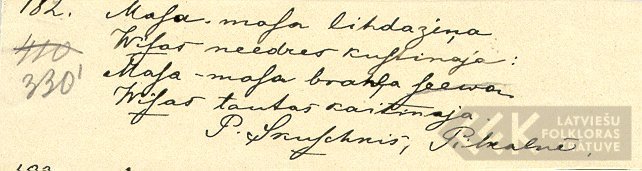 182.
Masa-masa lihdaziņa
410 Wisas needres kustinaja:
330¹ Masa-masa brahļa seewa
Wisas tautas kaitinaja.
P. Skuschkis, Pilkalnē.
LATVIEŠU
FOLKLORAS
KRĀTUVE